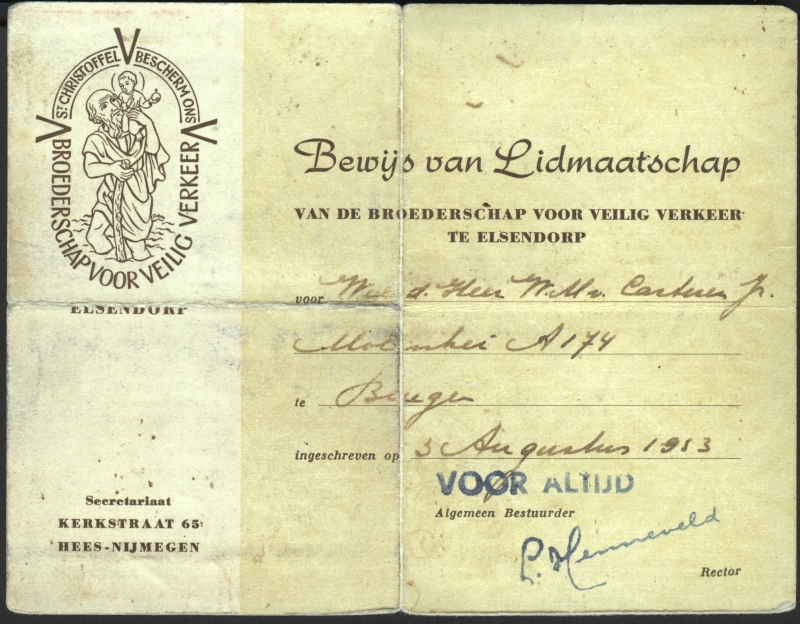 ST CHRISTOFFEL BESCHERM ONS
BROEDERSCHAP VOOR VEILIG VERKEER
ELSENDORP
Secretariaat
KERKSTRAAT 65
HEES-NIJMEGEN
Bewijs van Lidmaatschap
VAN DE BROEDERSCHAP VOOR VEILIG VERKEER
TE ELSENDORP
voor d. Heer W.M. v. Casteren Jr.
A 174
te
ingeschreven op 3 Augustus 1953
VOOR ALTIJD
Algemeen Bestuurder
Henneveld
Rector